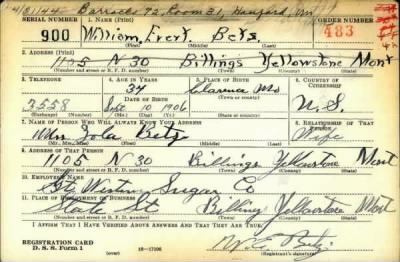 4/8/1944 Barracks 92, Room 31, Hanford, Wn
SERIAL NUMBER 1. Name (Print) ORDER NUMBER
900 William, Evert Betz 483
(First) (Middle) (Last)
2. Address (Print)
1105 N 30 Billings Yellowstone Mont
(Number and street or R. F. D. number) (Town) (County) (State)
3. Telephone 4. Age in Years 5. Place of Birth 6. Country of Citizenship
34 Clarence Mo
Date of Birth (Town or county)
3558 Sept 10 1906 U.S.
(Exchange) (Number) (Mo.) (Day) (Yr.) (State or country)
7. Name of Person Who Will Always Know Your Address 8. Relationship of That Person
Mrs Iola Betz Wife
(Mr., Mrs., Miss) (First) (Middle) (Last)
9. Address of That Person
1105 N 30 Billings Yellowstone Mont
(Number and street or R. F. D. number) (Town) (County) (State)
10. Employer's Name
Gt. Western Sugar Co
11. Place of Employment or Business
State St Billings Yellowstone Mont
(Number and street or R. F. D. number) (Town) (County) (State)
I Affirm That I Have Verified Above Answers and That They Are True.
REGISTRATION CARD
D. S. S. Form 1 (over) 16—17106
W. E. Betz
(Registrant's signature)